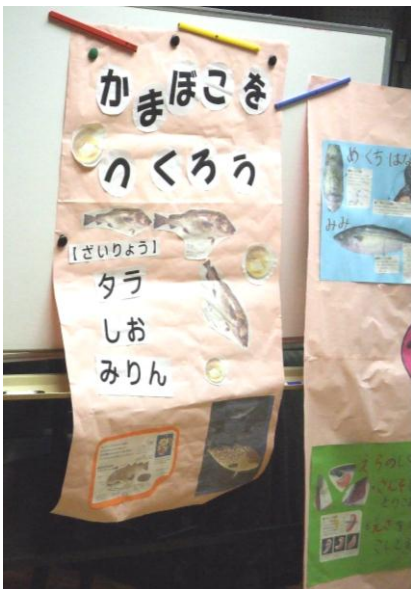 かまぼこを
つくろう
【ざいりょう】
タラ
しお
みりん
めくちはな
みみ
えらのし